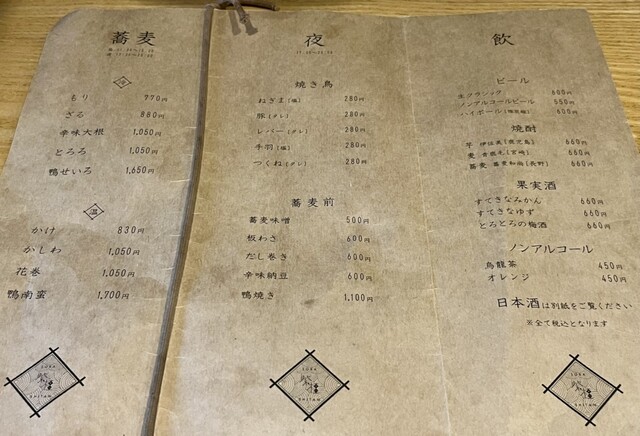 蕎麦
冷
もり 770円
ざる 880円
辛味大根 1,050円
とろろ 1,050円
鴨せいろ 1,650円
温
かけ 830円
かしわ 1,050円
花巻 1,050円
鴨南蛮 1,700円
夜
焼き鳥
ねぎま(塩) 280円
豚(タレ) 280円
レバー(タレ) 280円
手羽(塩) 280円
つくね(タレ) 280円
蕎麦前
蕎麦味噌 500円
板わさ 600円
だし巻き 600円
辛味納豆 600円
鴨焼き 1,100円
飲
ビール
生クラシック 600円
ノンアルコールビール 550円
ハイボール 600円
焼酎
芋 伊佐美(鹿児島) 660円
麦 (宮崎) 660円
蕎麦 蕎麦和尚(長野) 660円
果実酒
すてきなみかん 660円
すてきなゆず 660円
とろとろの梅酒 660円
ノンアルコール
烏龍茶 450円
オレンジ 450円
日本酒は別紙をご覧ください
※全て税込となります
SOBA
SHITAN
SOBA
SHITAN
SOBA
SHITAN